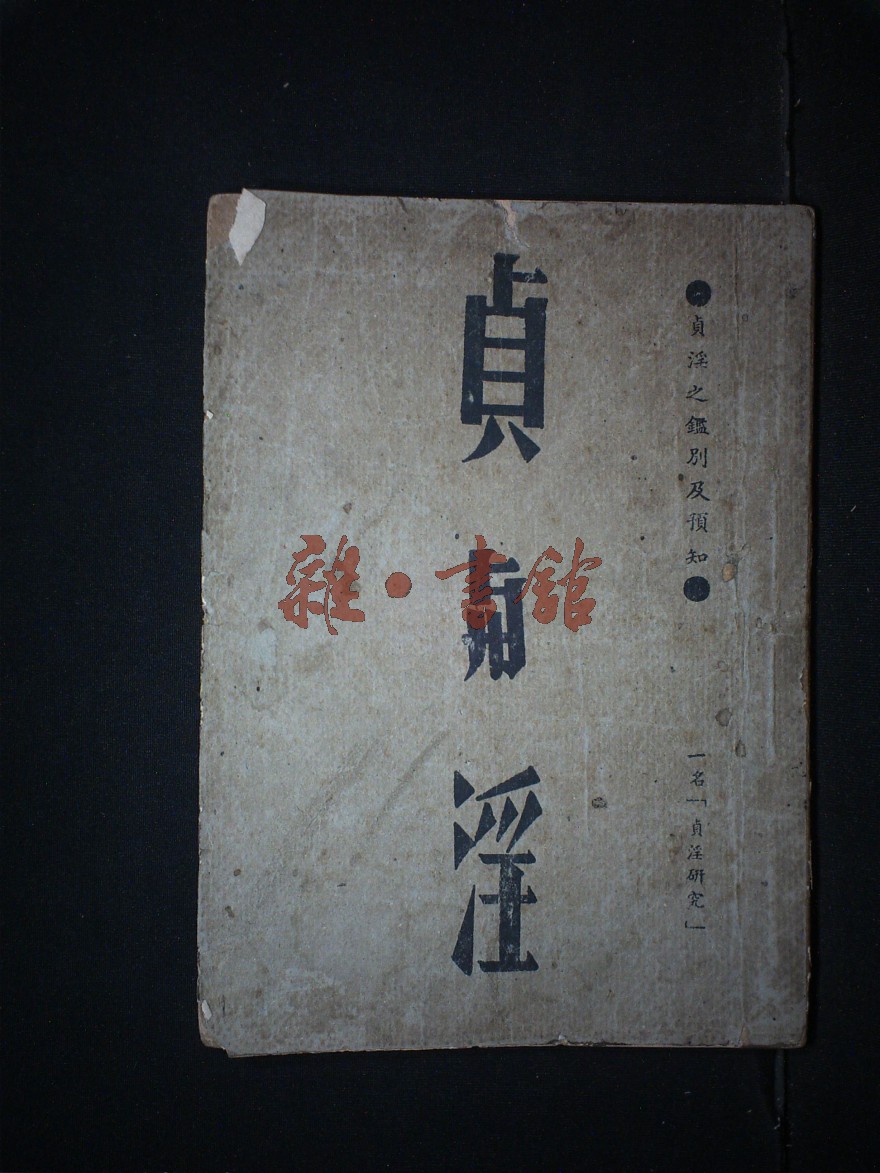 ●貞淫之鑑別及預知●
一名「貞淫研究」
貞 淫
雜·書館